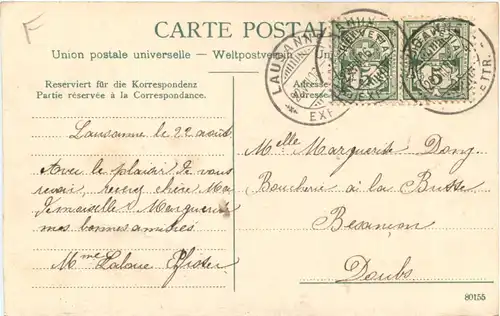 F
CARTE POSTALE
Union postale universelle – Weltpostverein
Reserviert für die Korrespondenz
Partie réservée à la Correspondance.
Adresse
Adresse
HELVETIA
5
HELVETIA
5
LAUSANNE
EXP. LETTR.
Lausanne le 22 août
Avec le plaisir de vous
revoir, recevez chère Ma
demoiselle Marguerite
mes bonnes amitiés
Mme Laloue Pfister
Melle Marguerite Dony
Boucherie à la Busse
Besançon
Doubs
80155